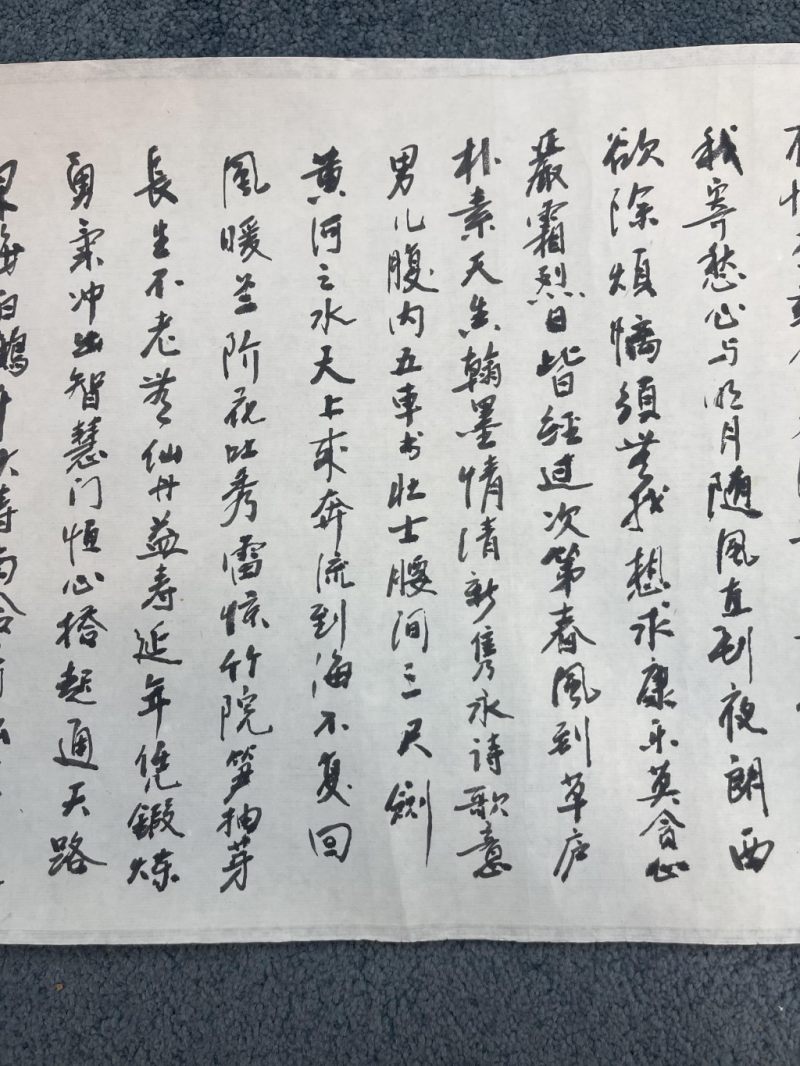 我寄愁心与明月随風直到夜朗西
欲除煩惱須無我想求康乐莫貪心
嚴霜烈日皆經过次第春風到草庐
朴素天真翰墨情清新隽永诗歌意
男儿腹内五車书壮士腰间三尺劍
黄河之水天上来奔流到海不复回
風暖兰阶花吐秀雷惊竹院笋抽芽
長生不老無仙丹益寿延年凭鍛炼
勇氣冲出智慧门恒心搭起通天路